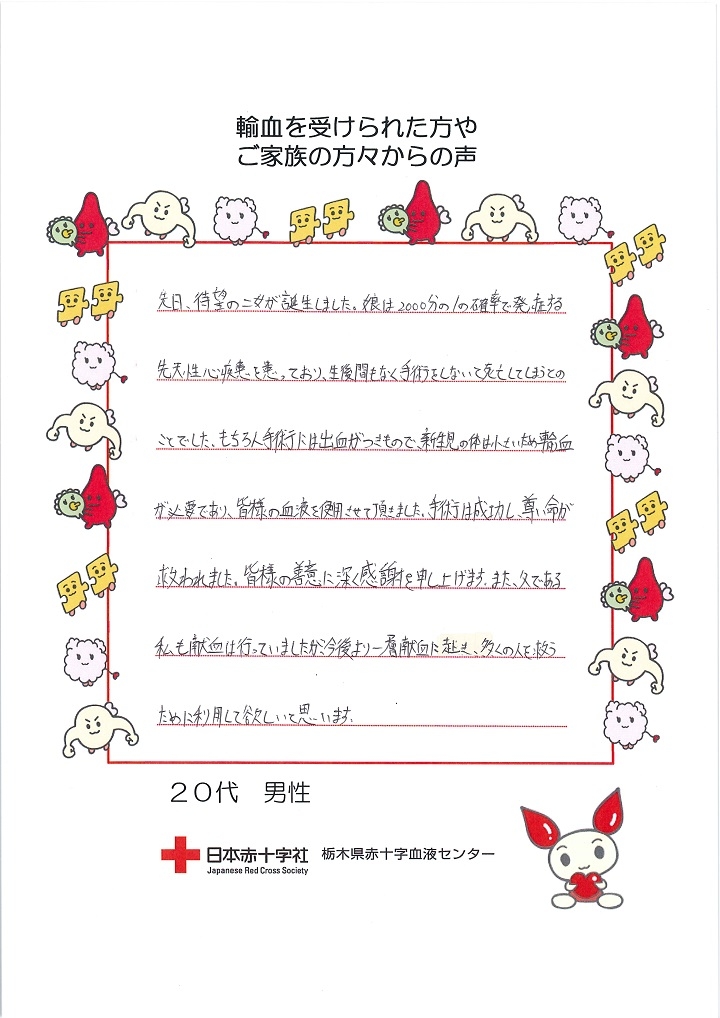 輸血を受けられた方や
ご家族の方々からの声
先日、待望の二女が誕生しました。娘は2000分の1の確率で発症する
先天性心疾患を患っており、生後間もなく手術をしないと死亡してしまうとの
ことでした。もちろん手術には出血がつきもので、新生児の体は小さいため輸血
が必要であり、皆様の血液を使用させて頂きました。手術は成功し、尊い命が
救われました。皆様の善意に深く感謝を申し上げます。また、父である
私も献血は行っていましたが今後より一層献血に赴き、多くの人を救う
ために利用して欲しいと思います。
20代 男性
日本赤十字社 栃木県赤十字血液センター
Japanese Red Cross Society